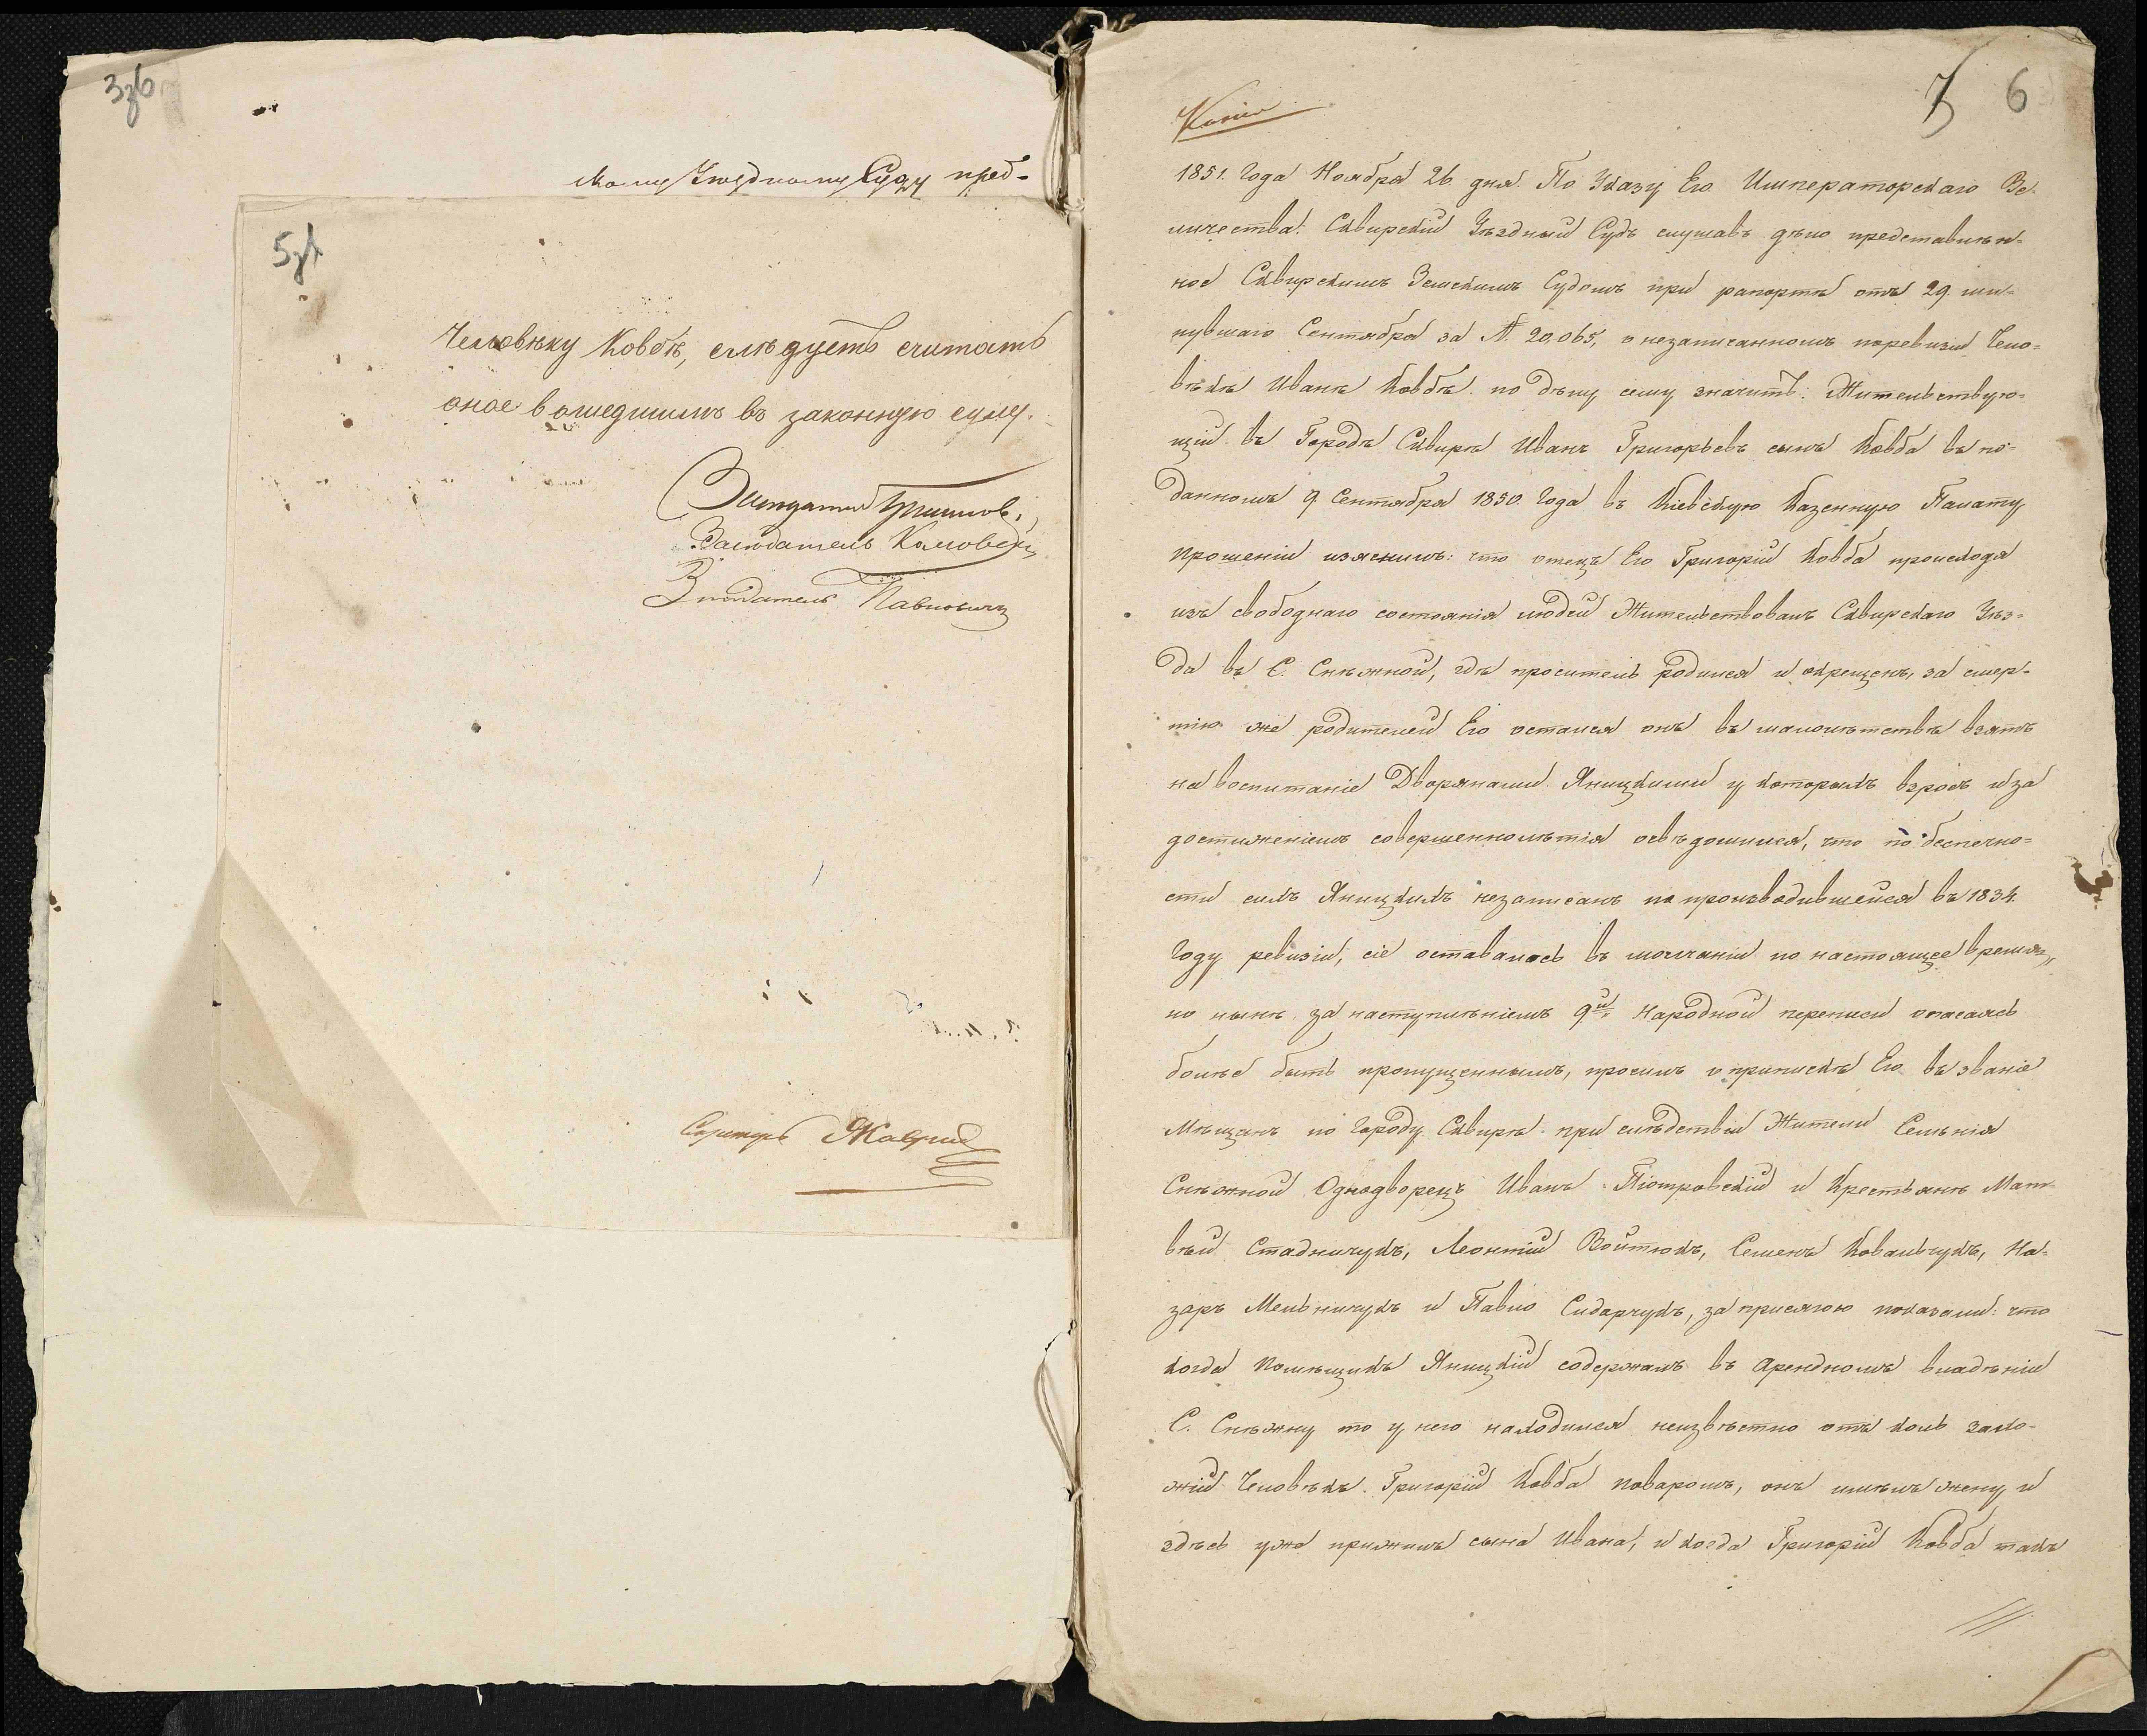 скому Уѣздному Суду пред-
Человѣку Ковбѣ, слѣдуетъ считать
оное вошедшимъ въ законную силу.
Засѣдатель
Засѣдатель
Засѣдатель Павловичъ
Секретарь
7 6
Копія
1851. Года Ноября 26. дня. По Указу Его Императорскаго Ве-
личества: Сквирскій Уѣздный Судъ слушавъ дѣло представлѣн-
ное Сквирскимъ Земскимъ Судомъ при рапортѣ отъ 29. ми-
нувшаго Сентября за №. 20,065, о незаписанномъ поревизіи Чело-
вѣкѣ Иванѣ Ковбѣ. по дѣлу сему значитъ: Жительствую-
щій въ Городѣ Сквирѣ Иванъ Григорьевъ сынъ Ковба въ по-
данномъ 9. Сентября 1850. Года въ Кіевскую Казенную Палату
прошеніи изяснилъ: что отецъ Его Григорій Ковба происходя
изъ свободнаго состоянія людей Жительствовалъ Сквирскаго Уѣз-
да въ С. Снѣжной, гдѣ проситель родился и окрещенъ, за смер-
тію же родителей Его остался онъ въ малолѣтствѣ взятъ
на воспитаніе Дворянами Яницкими у которыхъ взросъ и за
достиженіемъ совершеннолѣтія освѣдомился, что по безпечно-
сти сихъ Яницкихъ незаписанъ по производившейся въ 1834.
Году ревизіи, сіе оставалось въ молчаніи по настоящее время,,
но нынѣ за наступлѣніемъ 9й. Народной переписи опасаясь
болѣе быть пропущеннымъ, просилъ о припискѣ Его въ званіе
Мѣщанъ по Городу Сквирѣ. при слѣдствіи Жители Селѣнія
Снѣжной Однодворецъ Иванъ Піотровскій и Крестьянѣ Мат-
вѣй Стадничукъ, Леонтій Войтюкъ, Семенъ Ковальчукъ, На-
заръ Мельничукъ и Павло Сидарчукъ, за присягою показали: что
когда Помѣщикъ Яницкій содержалъ въ Арендномъ владѣніи
С. Снѣжну то у него находился неизвѣстно отъ коль захо-
жій Человѣкъ. Григорій Ковба поваромъ, онъ имѣлъ жену и
здѣсь уже прижилъ сына Ивана, и когда Григорій Ковба такъ